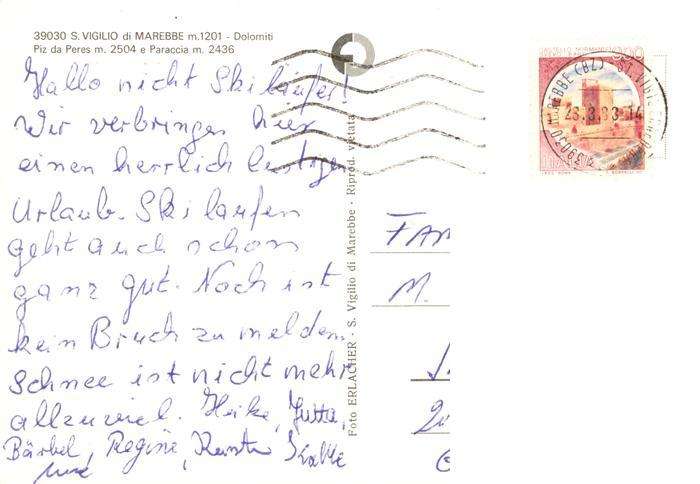 39030 S. VIGILIO di MAREBBE m.1201 - Dolomiti
Piz da Peres m. 2504 e Paraccia m. 2436
Hallo nicht Skiläufer!
Wir verbringen hier
einen herrlich lustigen
Urlaub. Skilaufen
geht auch schon
ganz gut. Noch ist
kein Bruch zu melden.
Schnee ist nicht mehr
allzuviel. Heike, Jutta,
Bärbel, Regine,
Foto ERLACHER · S. Vigilio di Marebbe · Riprod. vietata
39030
FAM
M.